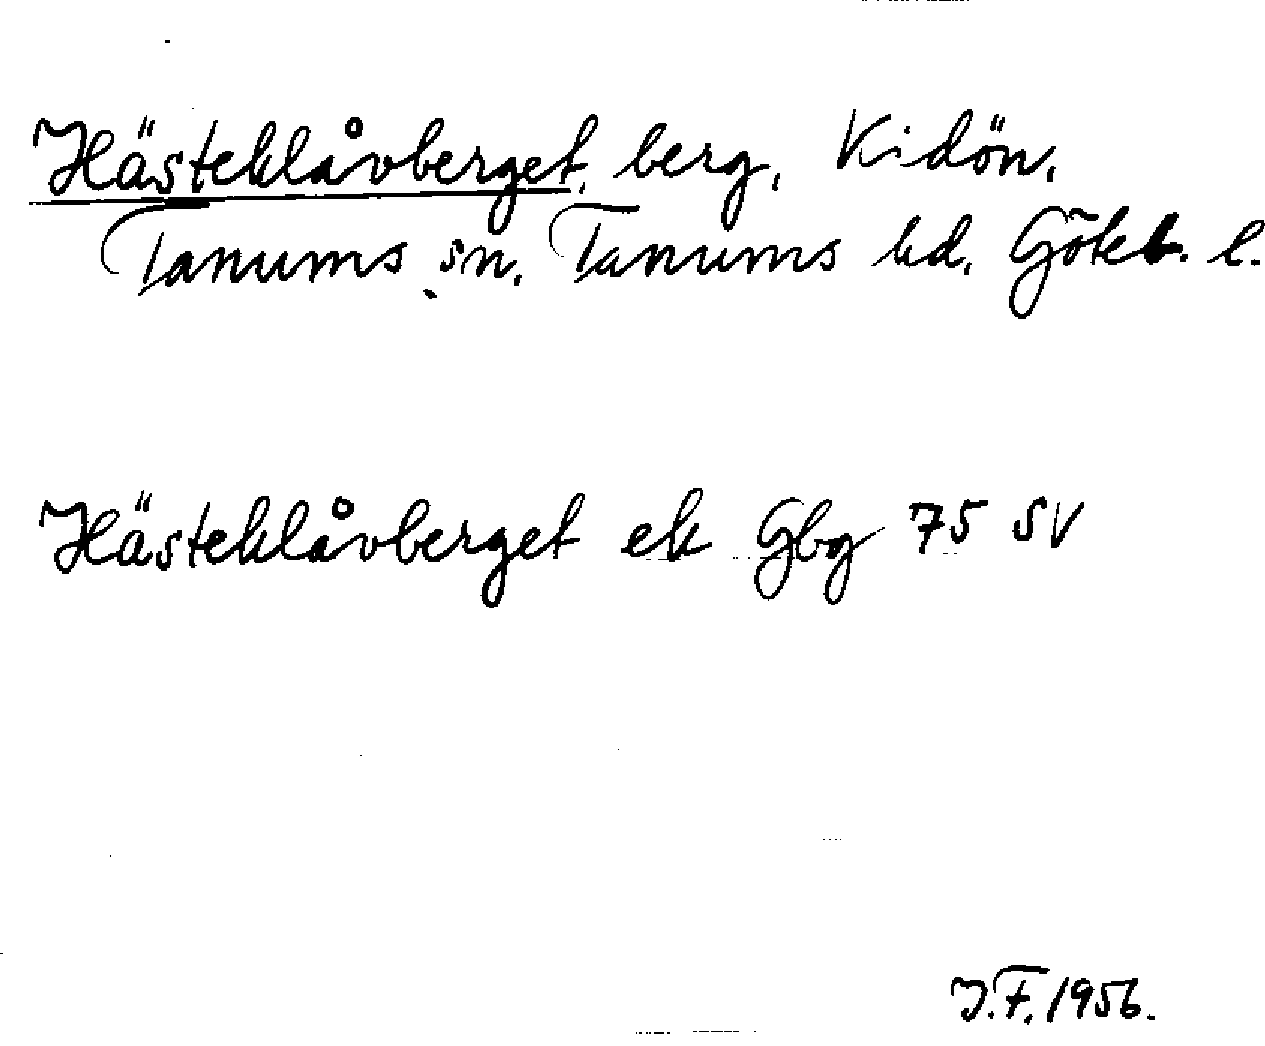 Hästeklåvberget, berg, Kidön,
Tanums sn. Tanums hd. Göteb. l.
Hästeklåvberget ek Gbg 75 SV
J.F. 1956.